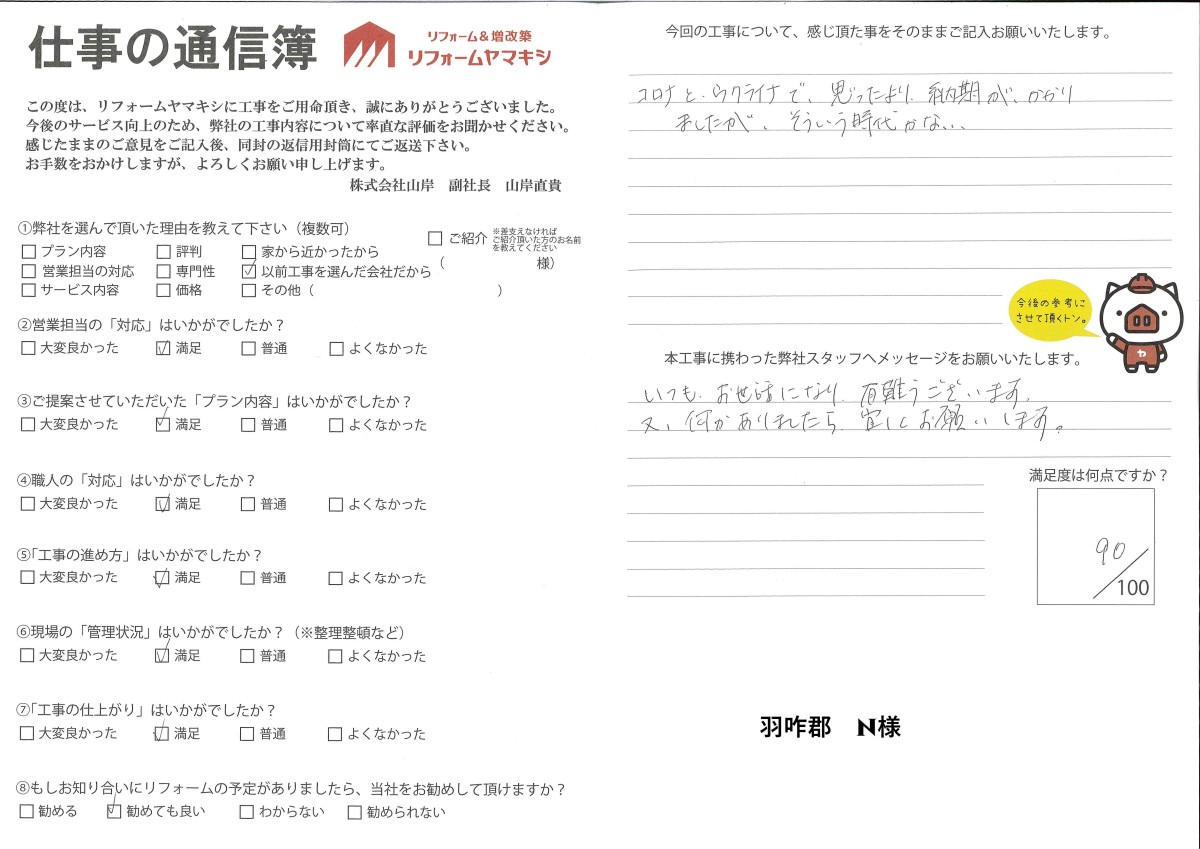 仕事の通信簿
リフォーム&増改築
リフォームヤマキシ
この度は、リフォームヤマキシに工事をご用命頂き、誠にありがとうございました。
今後のサービス向上のため、弊社の工事内容について率直な評価をお聞かせください。
感じたままのご意見をご記入後、同封の返信用封筒にてご返送下さい。
お手数をおかけしますが、よろしくお願い申し上げます。
株式会社山岸 副社長 山岸直貴
①弊社を選んで頂いた理由を教えて下さい（複数可）
□プラン内容 □評判 □家から近かったから
□営業担当の対応 □専門性 ☑以前工事を選んだ会社だから
□サービス内容 □価格 □その他（ ）
□ご紹介 ※差支えなければ
ご紹介頂いた方のお名前
を教えてください
（ 様）
②営業担当の「対応」はいかがでしたか？
□大変良かった ☑満足 □普通 □よくなかった
③ご提案させていただいた「プラン内容」はいかがでしたか？
□大変良かった ☑満足 □普通 □よくなかった
④職人の「対応」はいかがでしたか？
□大変良かった ☑満足 □普通 □よくなかった
⑤「工事の進め方」はいかがでしたか？
□大変良かった ☑満足 □普通 □よくなかった
⑥現場の「管理状況」はいかがでしたか？（※整理整頓など）
□大変良かった ☑満足 □普通 □よくなかった
⑦「工事の仕上がり」はいかがでしたか？
□大変良かった ☑満足 □普通 □よくなかった
⑧もしお知り合いにリフォームの予定がありましたら、当社をお勧めして頂けますか？
□勧める ☑勧めても良い □わからない □勧められない
今回の工事について、感じ頂た事をそのままご記入お願いいたします。
コロナと、ウクライナで、思ったより、納期が、かかり
ましたが、そういう時代かな、、
今後の参考に
させて頂くトン。
ヤ
本工事に携わった弊社スタッフへメッセージをお願いいたします。
いつも、お世話になり、有難うございます。
又、何かありましたら、宜しくお願いします。
満足度は何点ですか？
90
/100
羽咋郡 N様